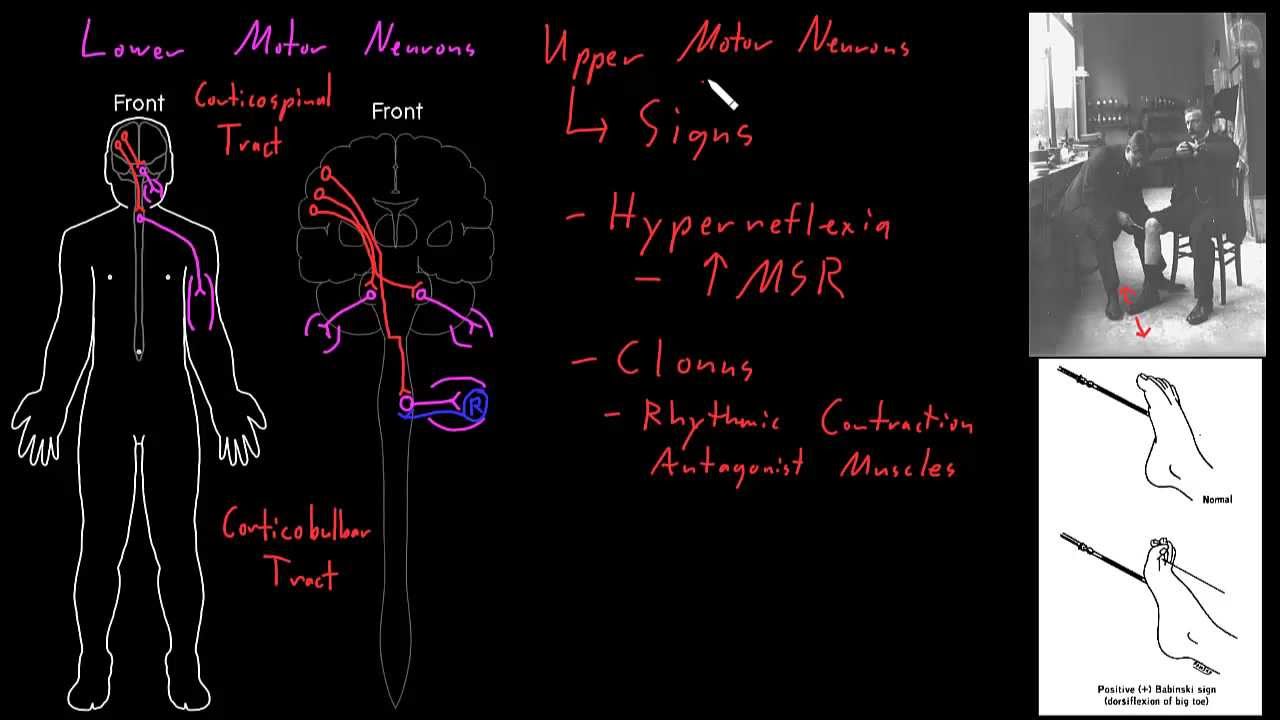 Lower Motor Neurons
Corticospinal
Tract
Front
Front
R
Corticobulbar
Tract
Upper Motor Neurons
↳ Signs
- Hyperreflexia
- ↑ MSR
- Clonus
- Rhythmic Contraction
Antagonist Muscles
Normal
Positive (+) Babinski sign
(dorsiflexion of big toe)